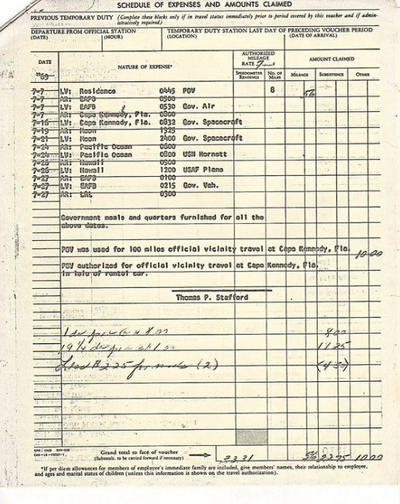 SCHEDULE OF EXPENSES AND AMOUNTS CLAIMED
PREVIOUS TEMPORARY DUTY (Complete these blocks only if in travel status immediately prior to period covered by this voucher and if administratively required.)
DEPARTURE FROM OFFICIAL STATION
(DATE) (HOUR)
TEMPORARY DUTY STATION LAST DAY OF PRECEDING VOUCHER PERIOD
(LOCATION) (DATE OF ARRIVAL)
DATE
NATURE OF EXPENSE*
AUTHORIZED MILEAGE RATE
AMOUNT CLAIMED
SPEEDOMETER READINGS
NO. OF MILES
MILEAGE
SUBSISTENCE
OTHER
69
7-7 LV: Residence 0445 POV 8 56
7-7 AR: EAFB 0500
7-7 LV: EAFB 0530 Gov. Air
7-7 AR: Cape Kennedy, Fla. 0800
7-16 LV: Cape Kennedy, Fla. 0832 Gov. Spacecraft
7-19 AR: Moon 1325
7-21 LV: Moon 2400 Gov. Spacecraft
7-24 AR: Pacific Ocean 0600
7-24 LV: Pacific Ocean 0800 USN Hornett
7-26 AR: Hawaii
LV: Hawaii 1200 USAF Plane
7-27 AR: EAFB 0100
7-27 LV: EAFB 0215 Gov. Veh.
7-27 AR: 0300
Government meals and quarters furnished for all the
above dates.
POV was used for 100 miles official vicinity travel at Cape Kennedy, Fla. 10.00
POV authorized for official vicinity travel at Cape Kennedy, Fla.
in of rental car.
Thomas P. Stafford
8.00
19 1/4
Less (2) (4.50)
Grand total to face of voucher
(Subtotals, to be carried forward if necessary)
1000
*If per diem allowances for members of employee's immediate family are included, give members' names, their relationship to employee,
and ages and marital status of children (unless this information is shown on the travel authorization).